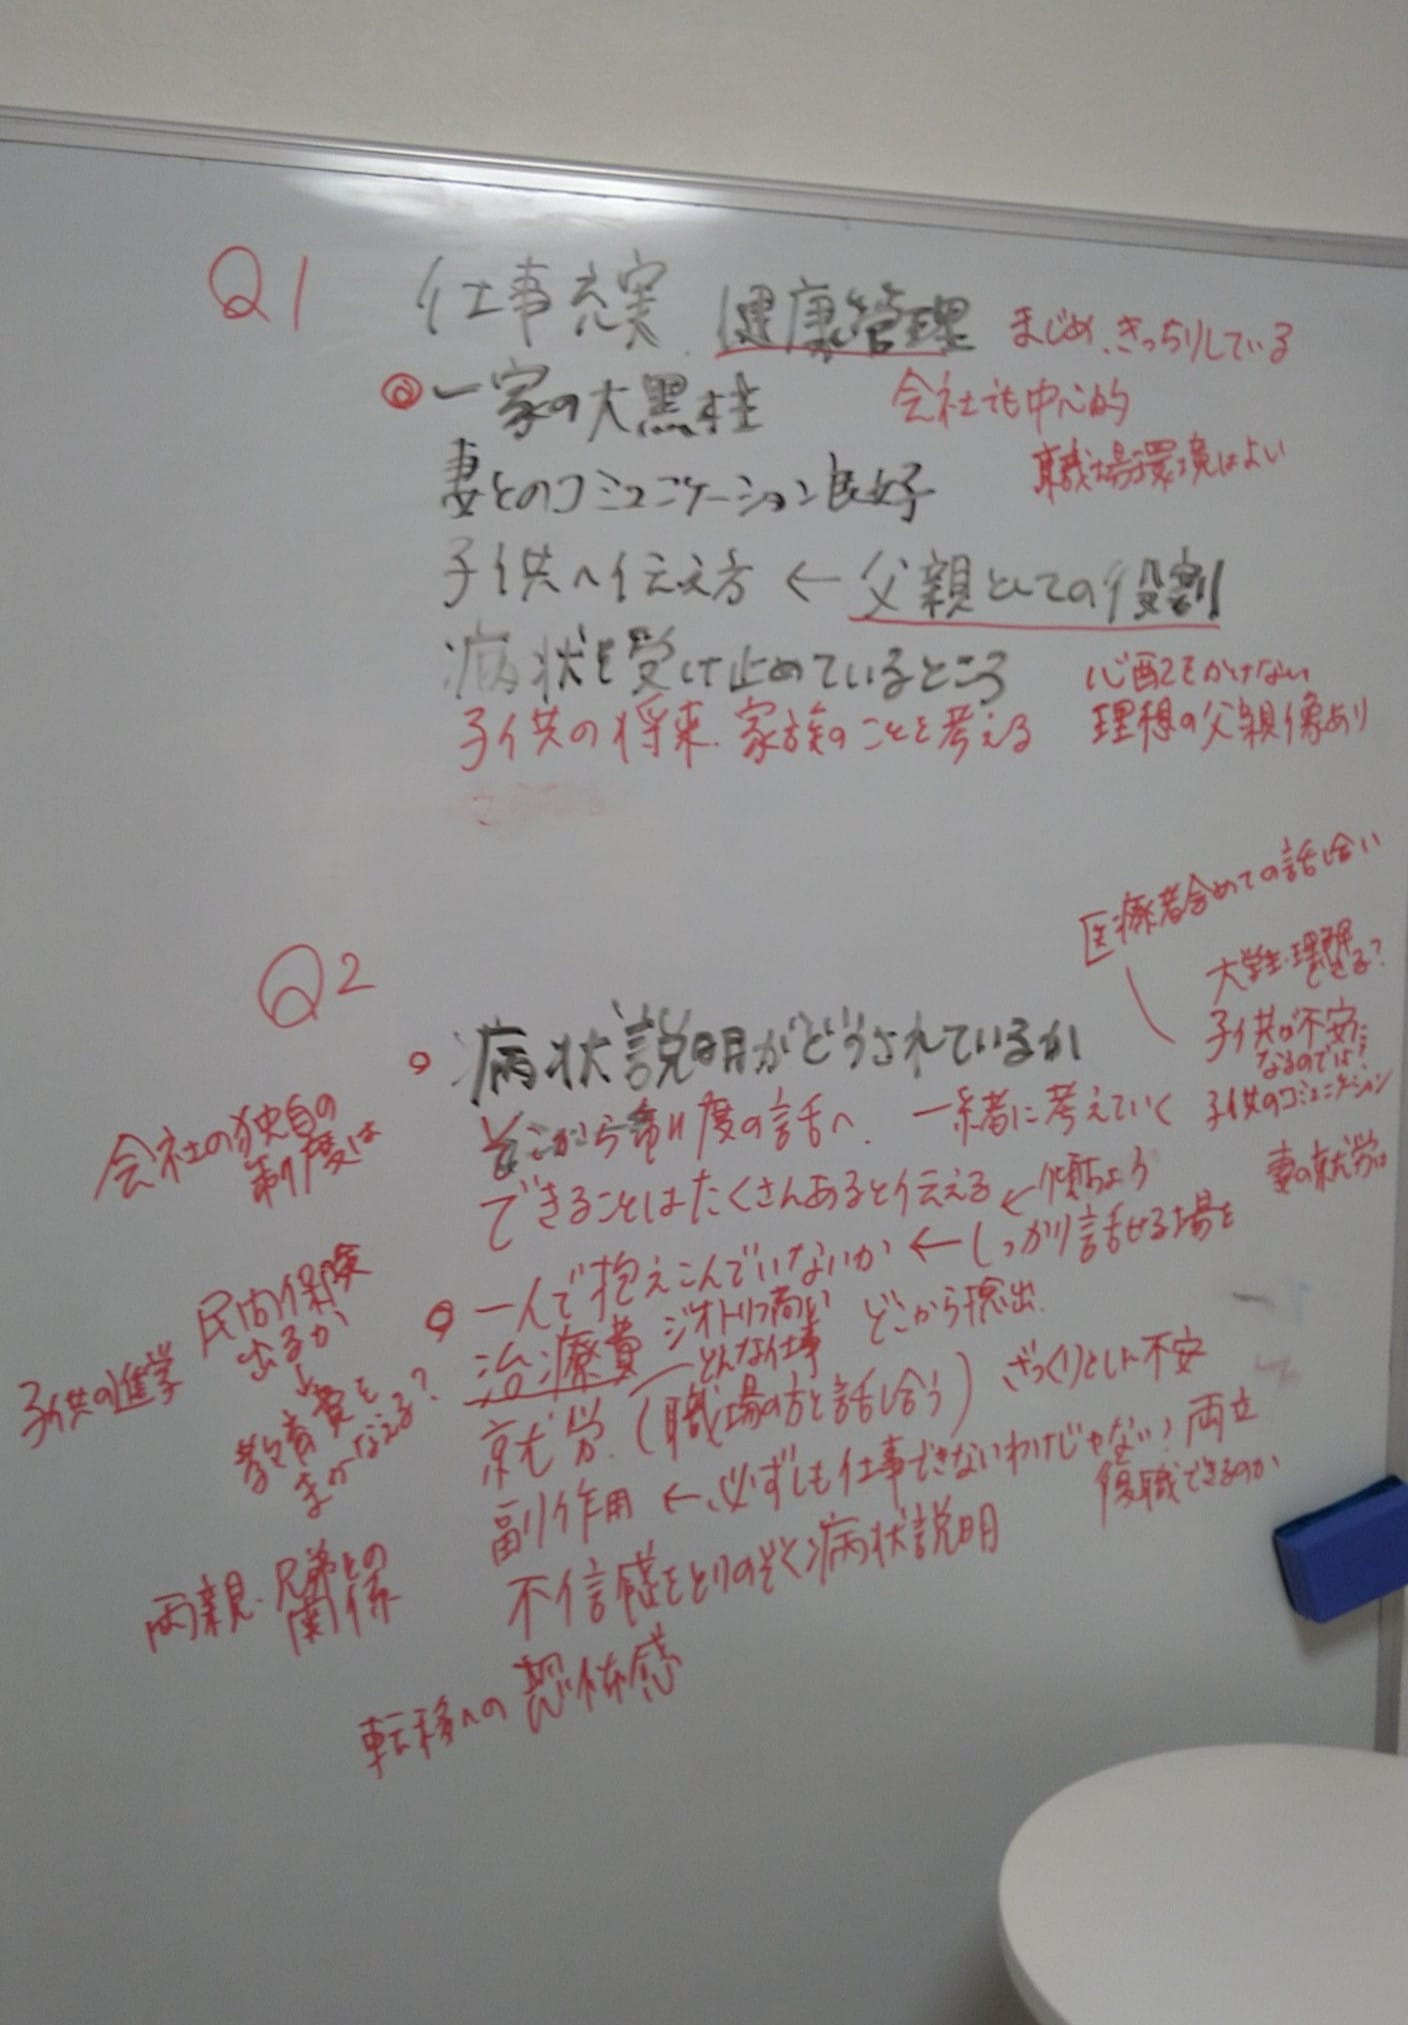 Q1
仕事充実 健康管理 まじめ、きっちりしている
◎一家の大黒柱 会社でも中心的
妻とのコミュニケーション良好 職場環境はよい
子供へ伝え方 ← 父親としての役割
病状を受け止めているところ 心配をかけない
子供の将来.家族のことを考える 理想の父親像あり
Q2
医療者含めての話し合い
大学生・理解できる?
子供が不安に
なるのでは?
子供のコミュニケーション
妻の就労は
○ 病状説明がどうされているか
そこから制度の話へ. 一緒に考えていく
できることはたくさんあると伝える ← 傾ちょう
一人で抱えこんでいないか ← しっかり話せる場を
○治療費 ジオトリフ高い どこから捻出.
どんな仕事
就労.(職場の方と話し合う) ざっくりとした不安
副作用 ← 必ずしも仕事できないわけじゃない! 両立
復職できるのか
不信感をとりのぞく病状説明
転移への恐怖感
会社の独自の
制度は
民間保険
出るか
↓
教育費を
まかなえる?
子供の進学
両親・兄弟との
関係